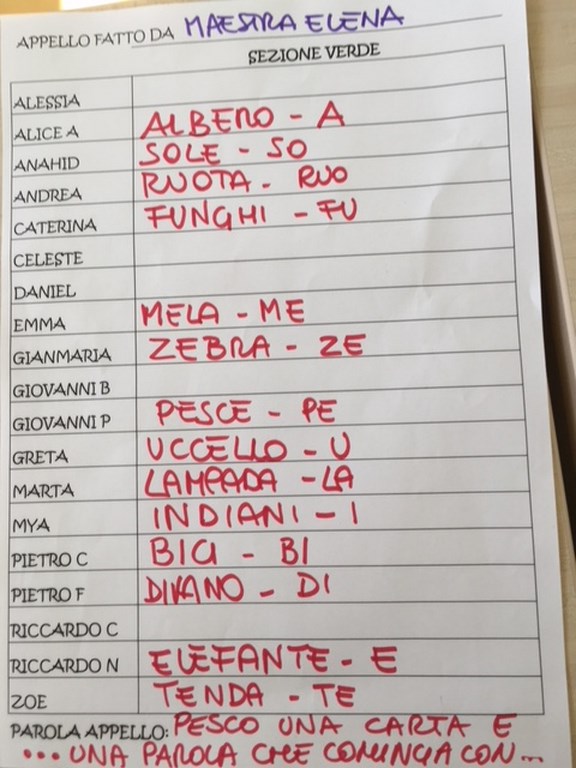 APPELLO FATTO DA MAESTRA ELENA
SEZIONE VERDE
ALESSIA
ALICE A ALBERO - A
ANAHID SOLE - SO
ANDREA RUOTA - RUO
CATERINA FUNGHI - FU
CELESTE
DANIEL
EMMA MELA - ME
GIANMARIA ZEBRA - ZE
GIOVANNI B
GIOVANNI P PESCE - PE
GRETA UCCELLO - U
MARTA LAMPADA - LA
MYA INDIANI - I
PIETRO C BICI - BI
PIETRO F DIVANO - DI
RICCARDO C
RICCARDO N ELEFANTE - E
ZOE TENDA - TE
PAROLA APPELLO: PESCO UNA CARTA E
... UNA PAROLA CHE COMINCIA CON...